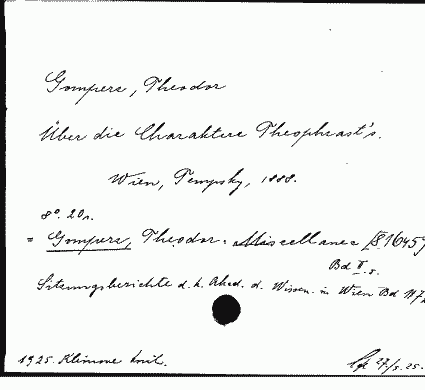 Gomperz, Theodor
Über die Charaktere Theophrast's.
Wien, Tempsky, 1888.
8°. 20 s.
= Gomperz, Theodor: Miscellanea [S 1645]
Bd V. s.
Sitzungsberichte d. k. Akad. d. Wissen. in Wien Bd 117
1925. Klimone
27/5.25.